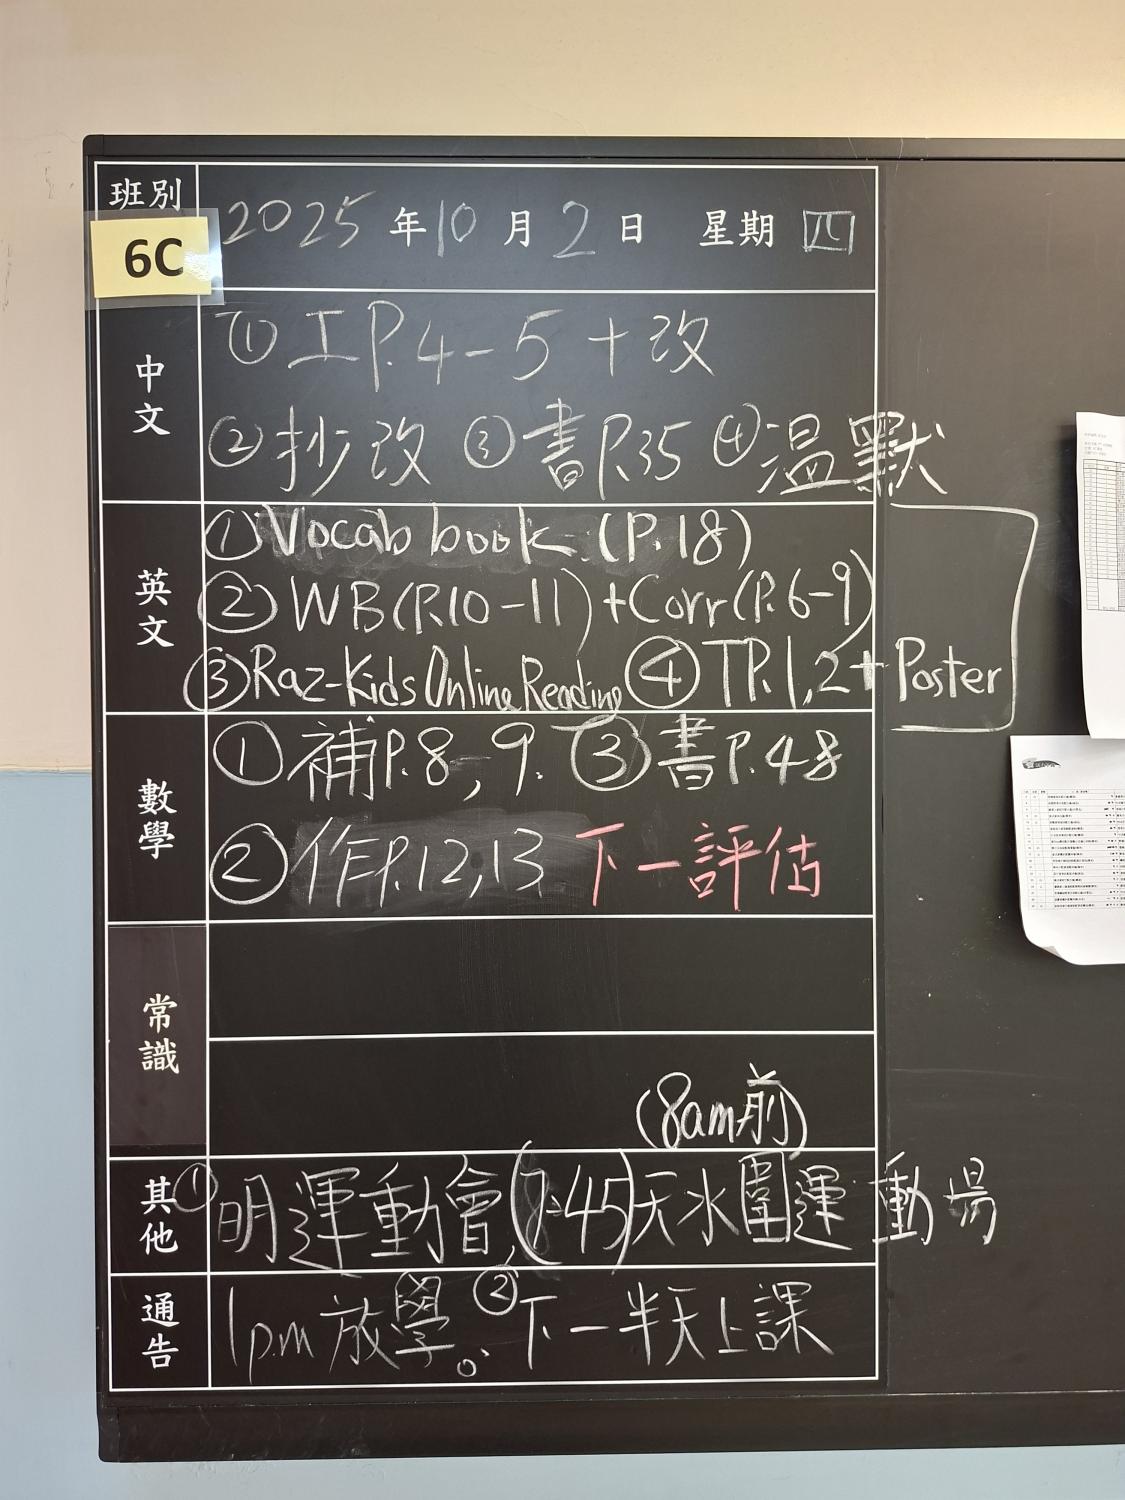 班別
6C
2025年10月2日 星期四
中文
①工P.4-5+改
②抄改 ③書P.35 ④温默
英文
①Vocab book (P.18)
②WB(P.10-11)+Corr(P.6-9)
③Raz-Kids Online Reading ④TP.1,2+Poster
數學
①補P.8,9. ③書P.48
②作P.12,13 下一評估
常識
(8am前)
其他
①明運動會(7:45)天水圍運動場
通告
1pm放學。②下一半天上課